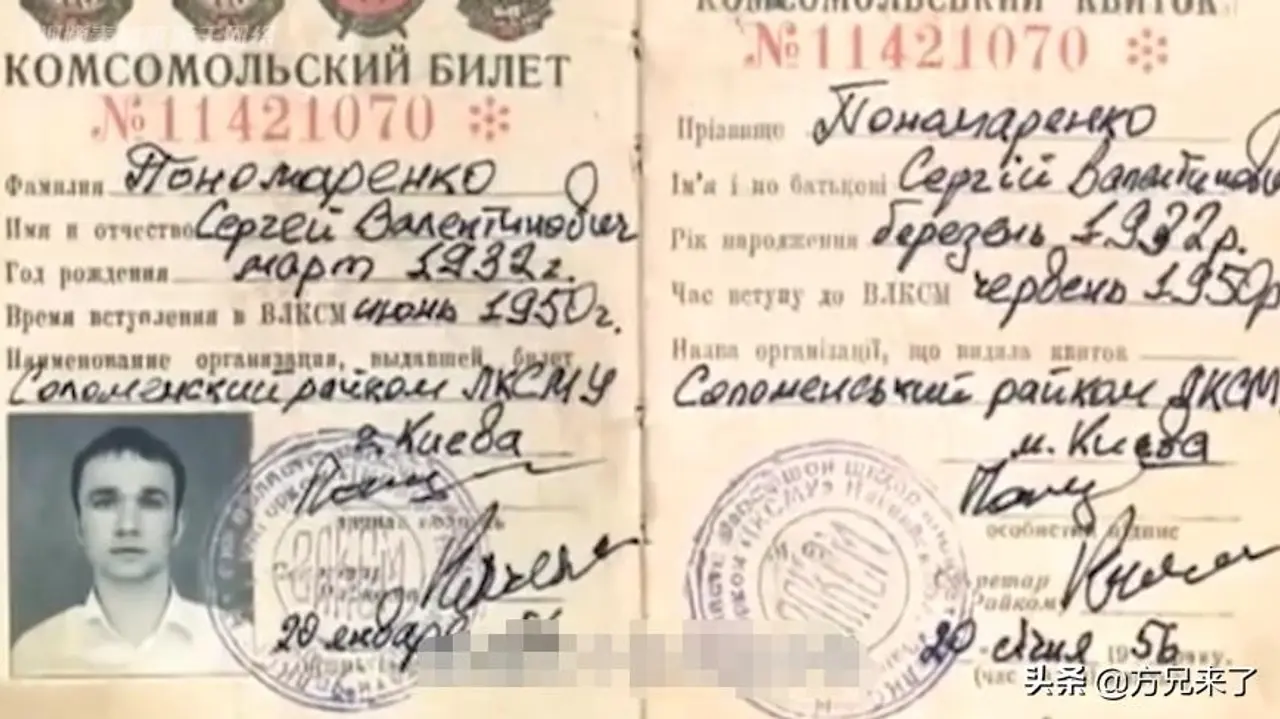 КОМСОМОЛЬСКИЙ БИЛЕТ
№11421070
Фамилия Пономаренко
Имя и отчество Сергей Валентинович
Год рождения март 1932 г.
Время вступления в ВЛКСМ июнь 1950 г.
Наименование организации, выдавшей билет
Соломенский райком ЛКСМУ
г. Киева
ВЛКСМ
20 января
КОМСОМОЛЬСЬКИЙ КВИТОК
№11421070
Прізвище Пономаренко
Ім'я і по батькові Сергій Валентинович
Рік народження березень 1932 р.
Час вступу до ВЛКСМ червень 1950 р
Назва організації, що видала квиток
Соломенський райком ЛКСМ
м. Києва
особистий підпис
Секретар
Райкому
ВЛКСМ
20 січня 1956 року.
头条 @方兄来了